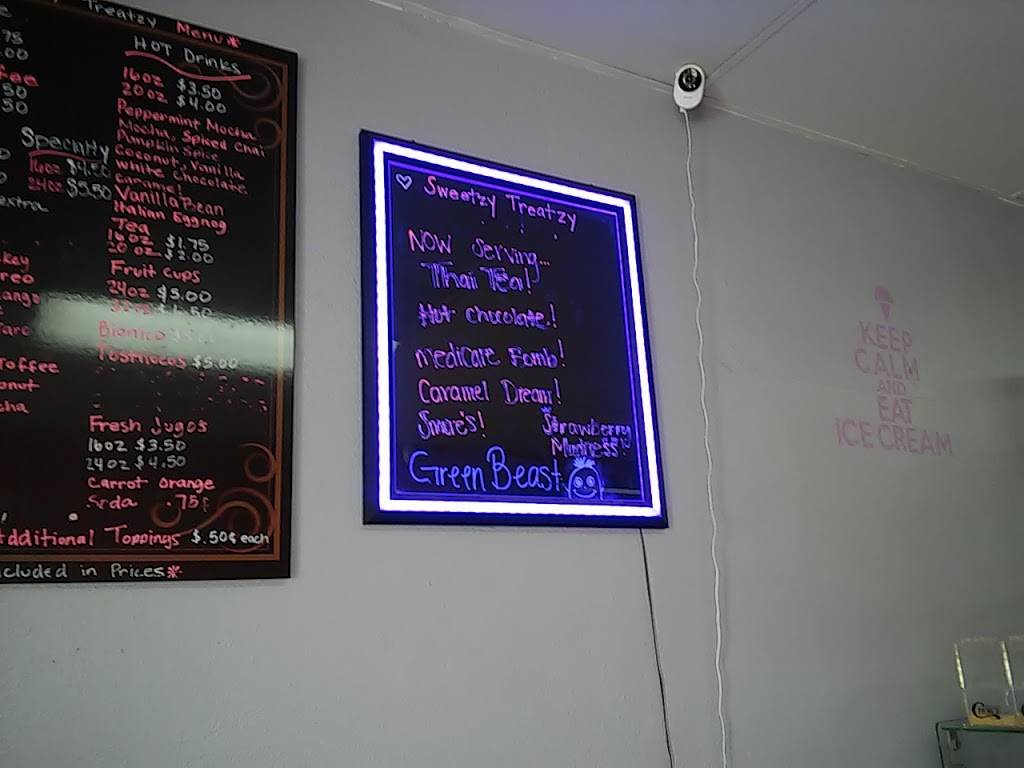 Treatzy Menu*
HOT Drinks
16oz $3.50
20oz $4.00
Peppermint Mocha
Mocha, Spiced Chai
Pumpkin Spice
Coconut, Vanilla
White Chocolate
Caramel
Vanilla Bean
Italian Eggnog
Tea
16oz $1.75
20oz $2.00
Fruit cups
24oz $5.00
Bionico
Tostilocos $5.00
Fresh Jugos
16oz $3.50
24oz $4.50
Carrot Orange
Soda .75¢
Additional Toppings $.50¢ each
included in Prices*
75
.00
50
50
Specialty
16oz
24oz $5.50
extra
♡ Sweetzy Treatzy
NOW Serving...
Thai Tea!
Hot Chocolate!
medicare Bomb!
Caramel Dream!
Smore's!
Strawberry
Madness!
Green Beast
KEEP
CALM
AND
EAT
ICE CREAM